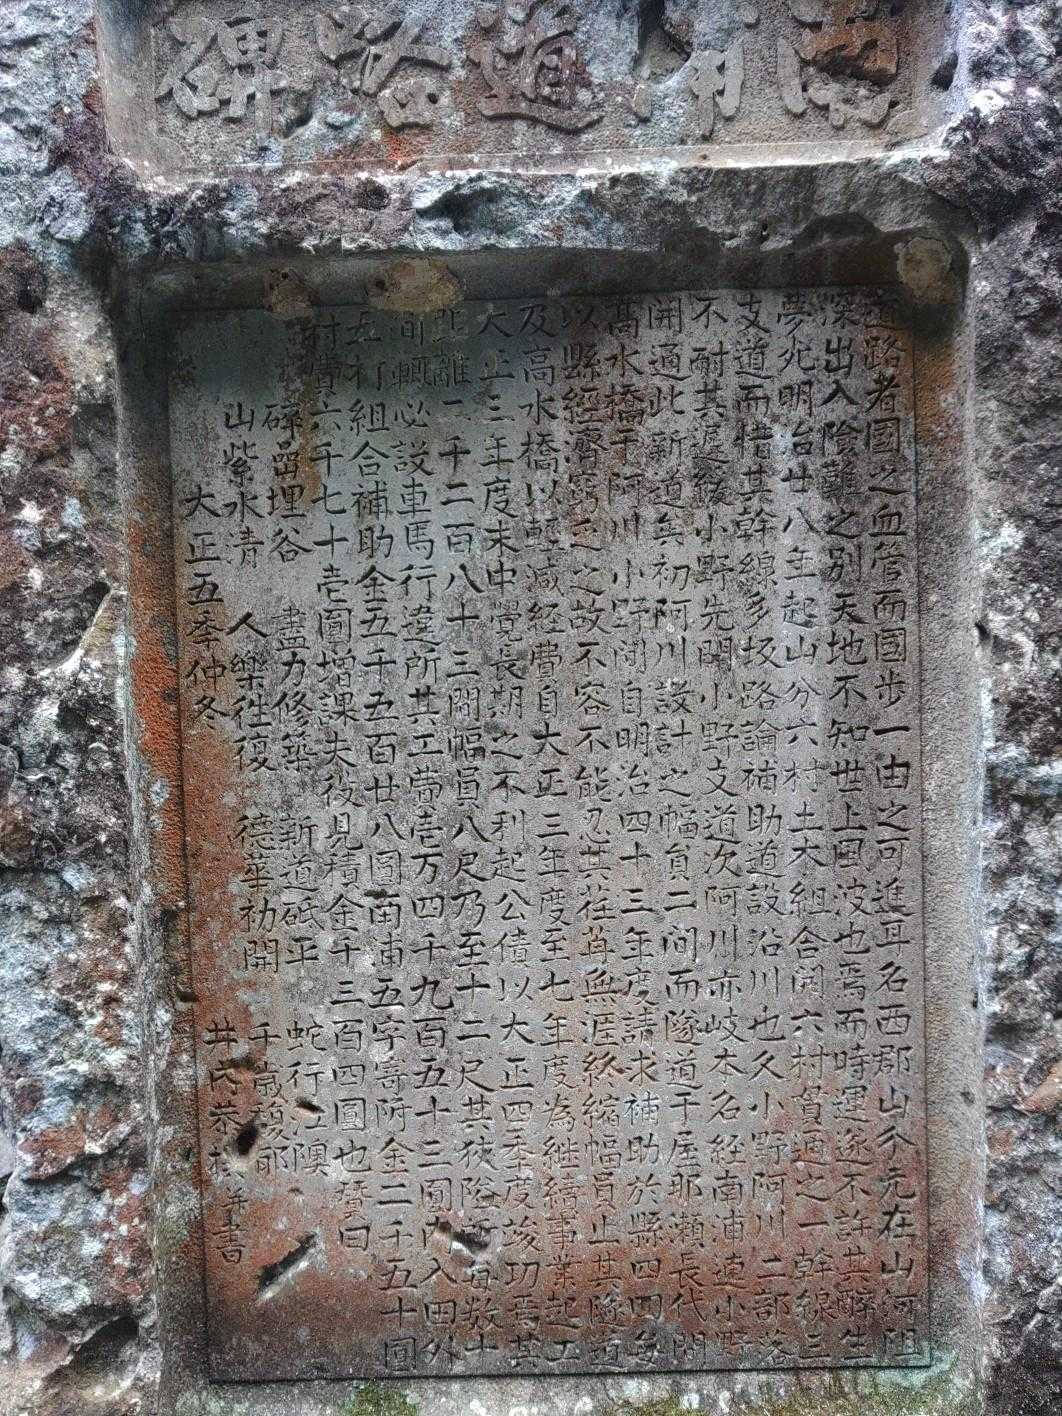 開道路碑
道路者國之血管而國步一由之可進耳名西郡山分元在山河阻
深出入陰難之別天地不知世上風波也焉而時運遂不許其醉生
夢死明治廿八年起山分六村土木組合開六村貫通之一幹線三
支道而惜其幹線多坂路論補助道設沿川也久小野阿川二部落
不耐其遅緩小野先開小野支道次阿川亦岐本名経南浦連小野
開通此新道矣初阿川設計之幅員二间而隧道于屋那瀬長代門
高水橋于阿川小野間自明治四十三年度請求補助於縣四四每
以縣經濟窮乏之故不容不能忍其荏苒無涯終縮幅員止其隧道
及高水橋以輕減経費自大正三年度至七年度為継續事業起工
大正三年度末中覺長期之不利起公債以大正四季度竣功焉其
距離二千二百八十三間幅員八尺乃至十二尺其狹隘所每数十
间輙必設車馬行違所其工費壱万四千九百五十三圓內入田外
五村組合補助金五千五百廿八圓南浦五字寄附金二千五十圓
村費六千七十壱圓增課夫役見積金千三百四圓也聲曰
碎嵒埋谷 盡力修築 新道砥平 蛇行江隩
山紫水清 人樂往復 德華初開 千歲
大正五季仲冬 井內恭 書